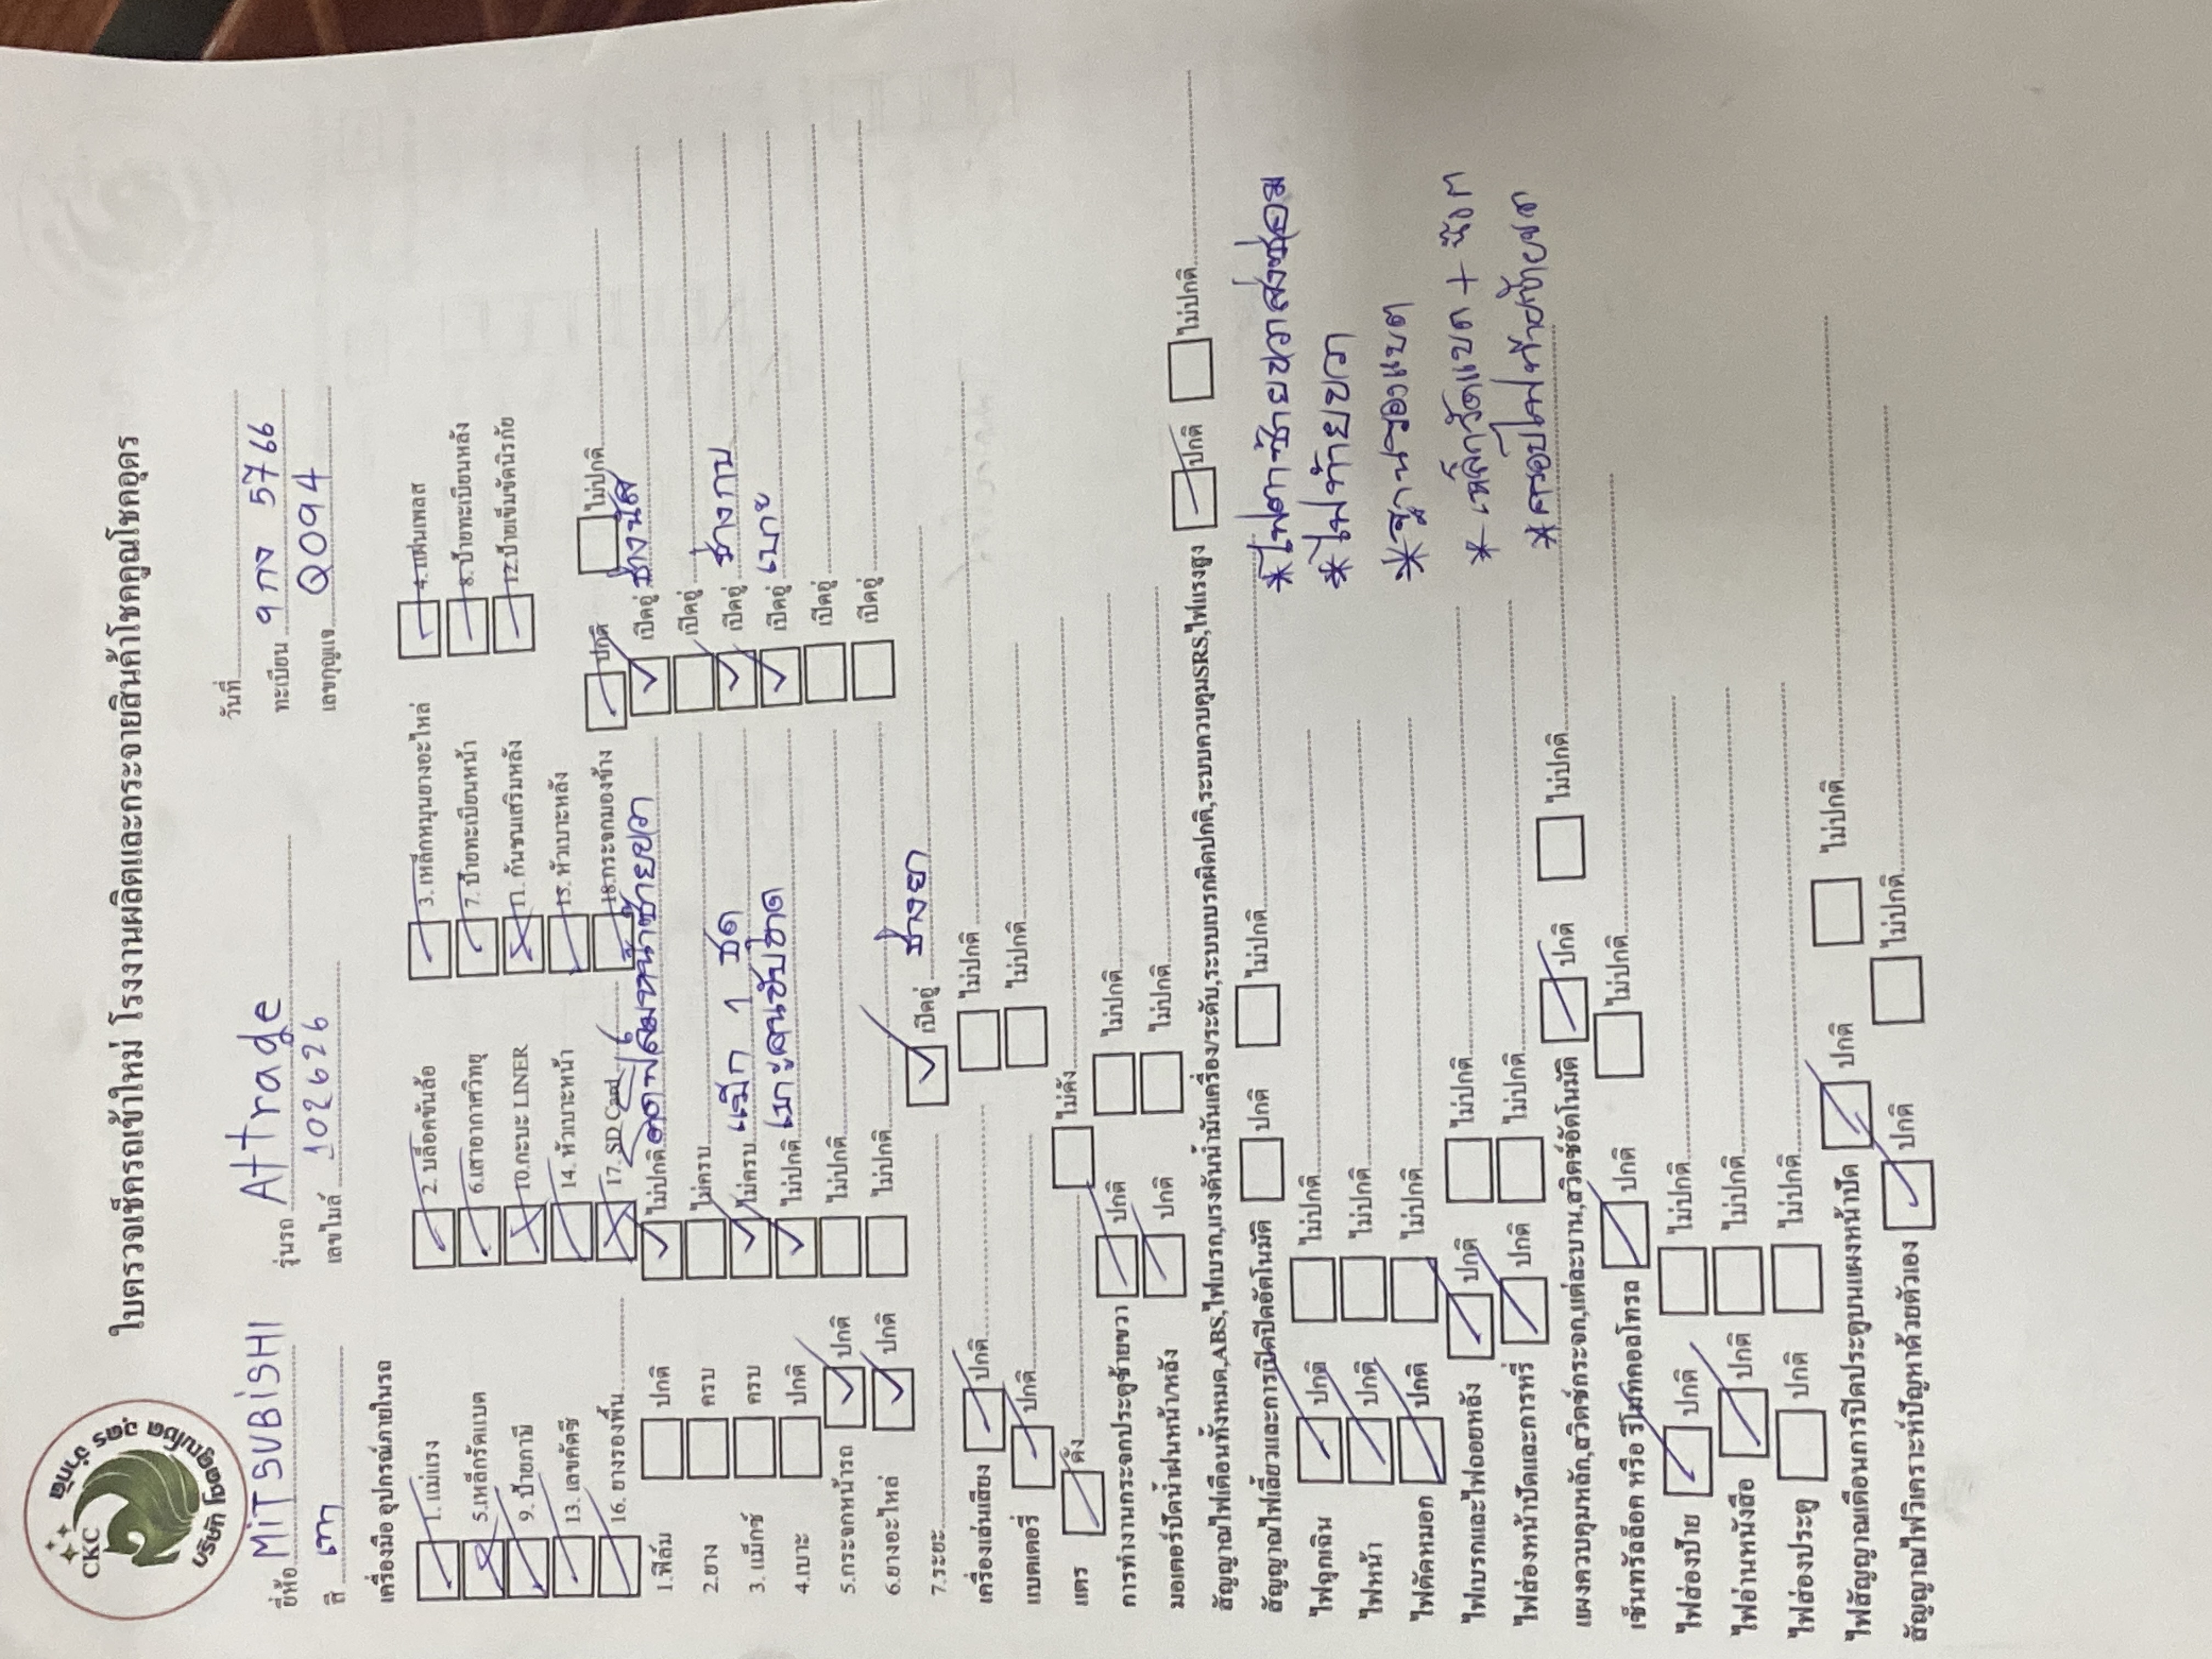 CKC
บริษัท โชคคูณโชค อุดร จำกัด
ใบตรวจเช็ครถเข้าใหม่ โรงงานผลิตและกระจายสินค้าโชคคูณโชคอุดร
วันที่
ยี่ห้อ MiTSUBiSHI รุ่นรถ Attrage ทะเบียน 9 กง 5766
สี เทา เลขไมล์ 102626 เลขกุญแจ Q094
เครื่องมือ อุปกรณ์ภายในรถ
1. แม่แรง 2. บล็อคขันล้อ 3. เหล็กหมุนยางอะไหล่ 4. แผ่นเพลส
5.เหล็กรัดแบต 6.เสาอากาศวิทยุ 7. ป้ายทะเบียนหน้า 8. ป้ายทะเบียนหลัง
9. ป้ายภาษี 10.กะบะ LINER 11. กันชนเสริมหลัง 12.ป้ายเข็มขัดนิรภัย
13. เลขคัตซี 14. หัวเบาะหน้า 15. หัวเบาะหลัง
16. ยางรองพื้น 17. SD Card 18.กระจกมองข้าง ปกติ ไม่ปกติ
1.ฟิล์ม ปกติ ไม่ปกติ ติดฟิล์มหน้าซ้ายขวา เบิคอู่ ช่างนัส
2.ยาง ครบ ไม่ครบ เบิคอู่
3. แม็กซ์ ครบ ไม่ครบ แม็ก 1 ชุด เบิคอู่ ช่างกบ
4.เบาะ ปกติ ไม่ปกติ เบาะคนขับขาด เบิคอู่ เบาะ
5.กระจกหน้ารถ ปกติ ไม่ปกติ เบิคอู่
6.ยางอะไหล่ ปกติ ไม่ปกติ เบิคอู่
7.ระยะ เบิคอู่ ช่างยา
เครื่องเล่นเสียง ปกติ ไม่ปกติ
แบตเตอรี่ ปกติ ไม่ปกติ
แตร ดัง ไม่ดัง
การทำงานกระจกประตูซ้ายขวา ปกติ ไม่ปกติ
มอเตอร์ปัดน้ำฝนหน้า/หลัง ปกติ ไม่ปกติ
สัญญาณไฟเตือนทั้งหมด,ABS,ไฟเบรก,แรงดันน้ำมันเครื่อง/ระดับ,ระบบเบรกผิดปกติ,ระบบควบคุมSRS,ไฟแรงสูง ปกติ ไม่ปกติ
สัญญาณไฟเลี้ยวและการเปิดปิดอัตโนมัติ ปกติ ไม่ปกติ *ไฟตาซ้ายขวาส่งซ่อม
ไฟฉุกเฉิน ปกติ ไม่ปกติ *ไฟท้ายขวา
ไฟหน้า ปกติ ไม่ปกติ
ไฟตัดหมอก ปกติ ไม่ปกติ *ฐานรองแบต
ไฟเบรกและไฟถอยหลัง ปกติ ไม่ปกติ *เหล็กรัดแบต + น๊อต
ไฟส่องหน้าปัดและการหรี่ ปกติ ไม่ปกติ
แผงควบคุมหลัก,สวิตช์กระจก,แต่ละบาน,สวิตช์อัตโนมัติ ปกติ ไม่ปกติ *ครอบไฟท้ายซ้าย
เซ็นทรัลล็อค หรือ รีโมทคอลโทรล ปกติ ไม่ปกติ
ไฟส่องป้าย ปกติ ไม่ปกติ
ไฟอ่านหนังสือ ปกติ ไม่ปกติ
ไฟส่องประตู ปกติ ไม่ปกติ
ไฟสัญญาณเตือนการปิดประตูบนแผงหน้าปัด ปกติ ไม่ปกติ
สัญญาณไฟวิเคราะห์ปัญหาด้วยตัวเอง ปกติ ไม่ปกติ